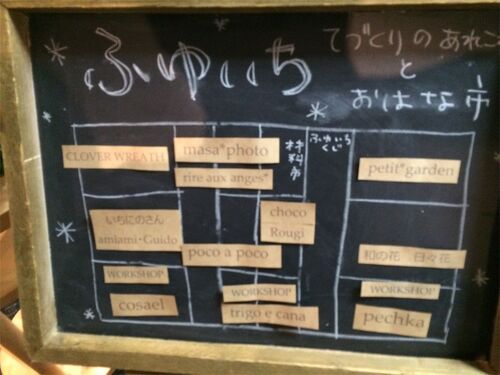 ふゆいち
てづくりのあれこ
と
おはな市
CLOVER WREATH
masa*photo
rire aux anges*
材料市
ふゆいち
くじ
petit*garden
いちにのさん
amiami・Guido
choco
Rougi
poco a poco
和の花 日々花
WORKSHOP
cosael
WORKSHOP
trigo e cana
WORKSHOP
pechka